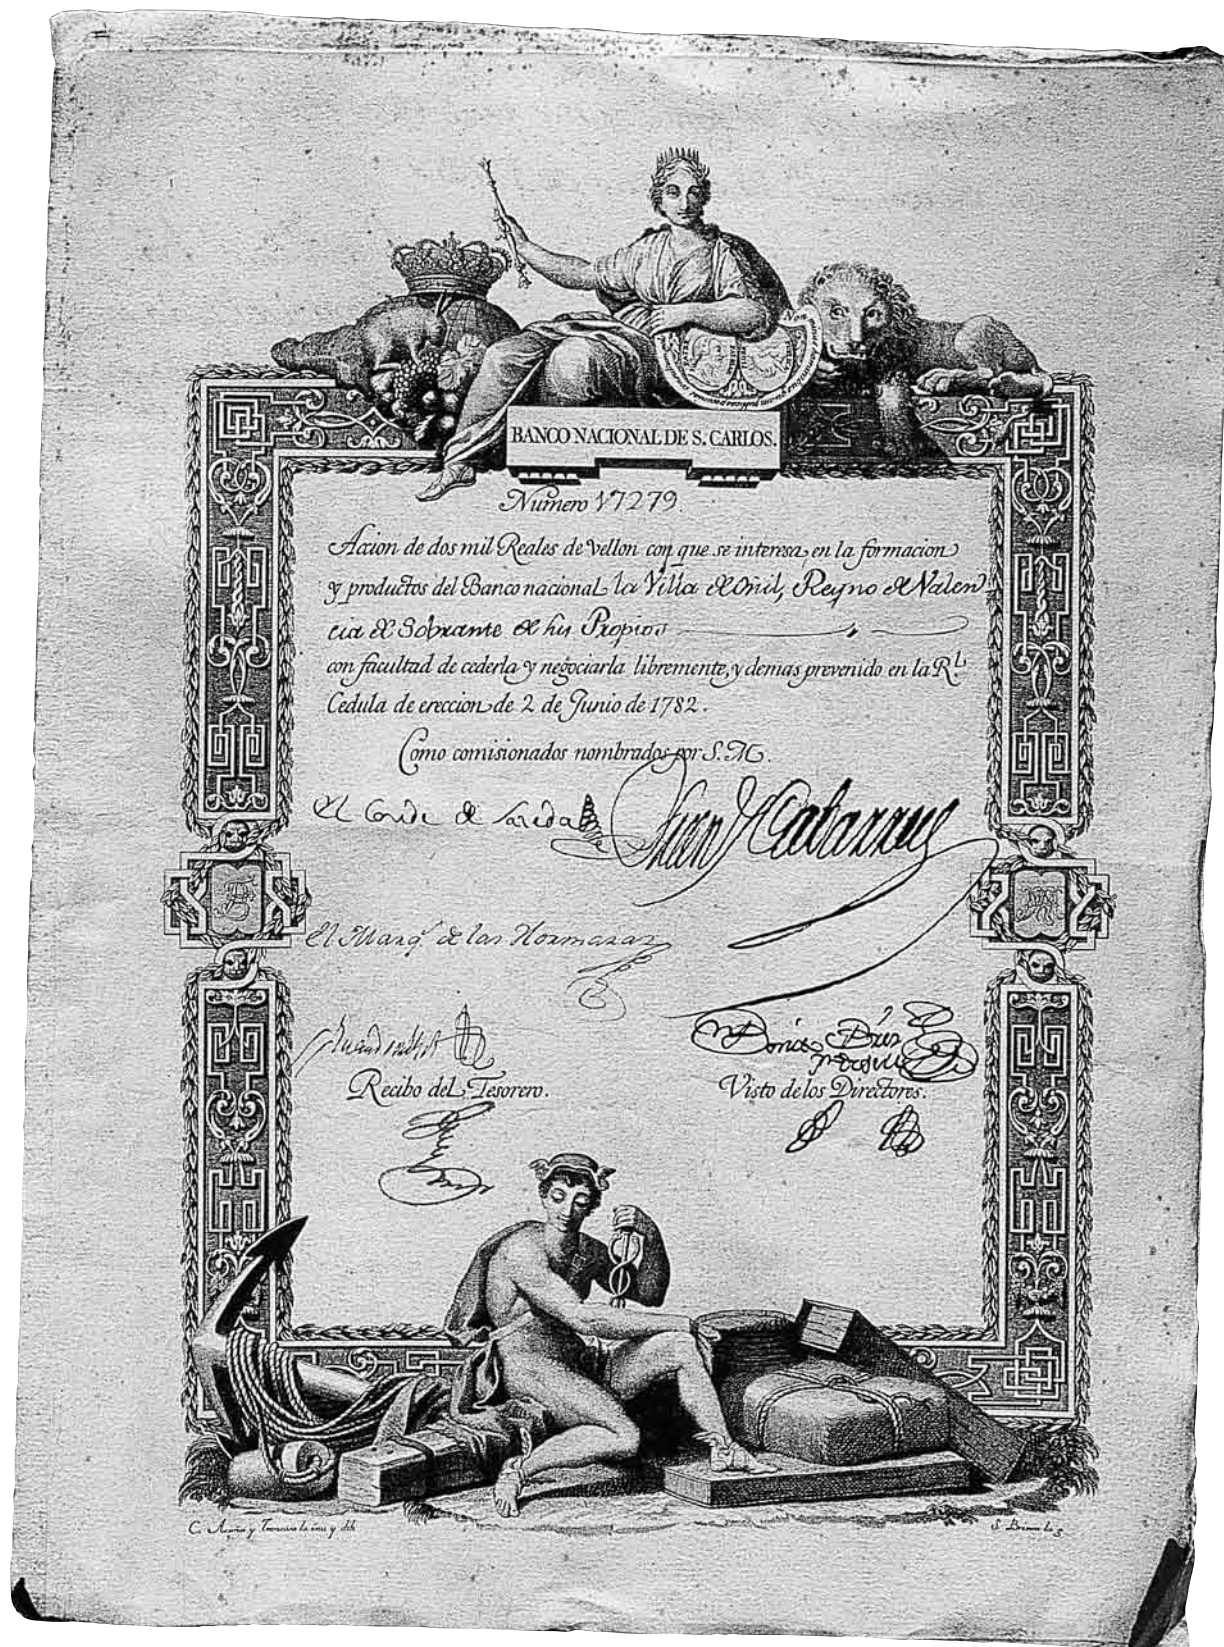 BANCO NACIONAL DE S. CARLOS.
Numero 17279.
Accion de dos mil Reales de Vellon con que se interesa, en la formacion
y productos del Banco nacional la Villa de Onil, Reyno de Valen
cia de Sobrante de sus Propios
con facultad de cederla y negociarla libremente, y demas prevenido en la Rl.
Cedula de ereccion de 2 de Junio de 1782.
Como comisionados nombrados por S. M.
El Conde de
Juan Cabarrus
El Marqs. de las Hormazas
Recibo del Tesorero.
Visto de los Directores.
C. y la y dib
S.